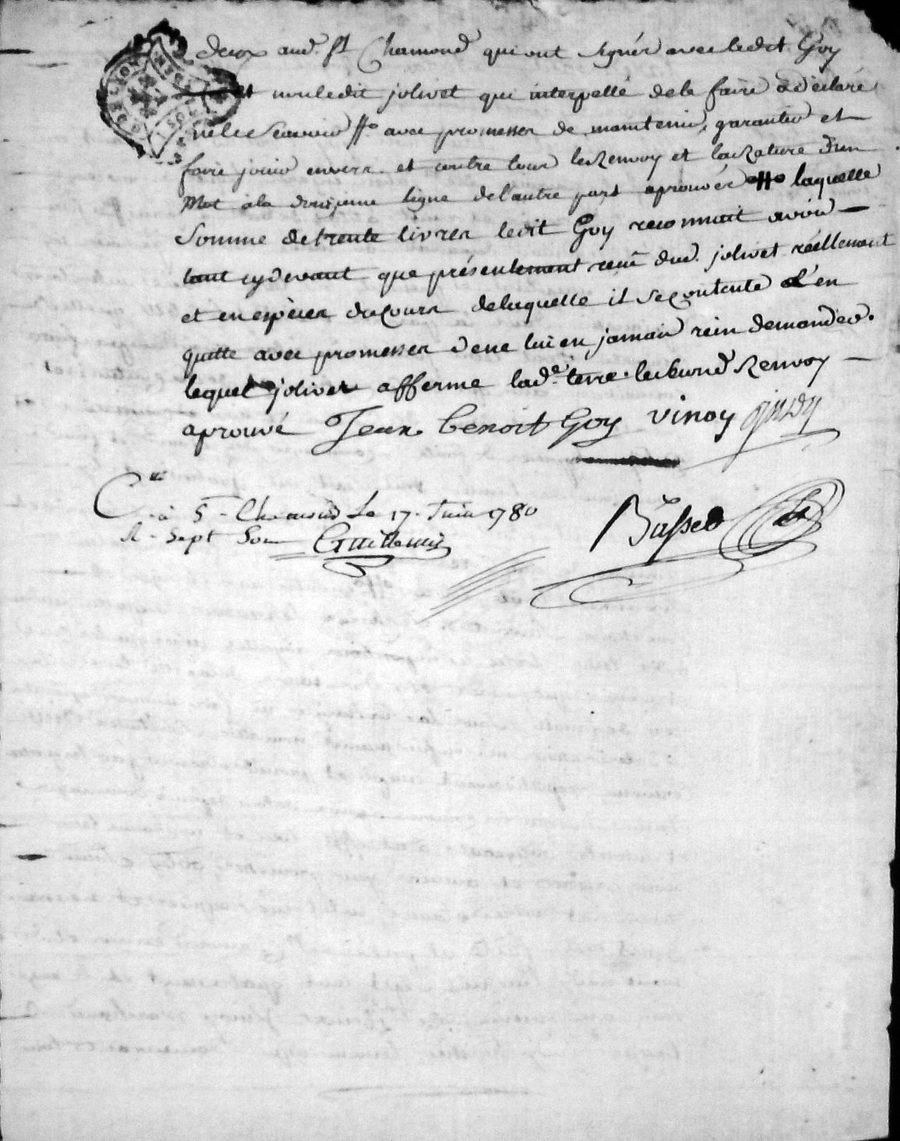 deux aud. St Chamond qui ont signés avec ledit Goy
et non ledit jolivet qui interpellé de le faire a déclaré
ne le scavoir avec promesses de maintenir, garantir et
faire jouir envers et contre tous le Renvoy et la Rature d'un
Mot a la ligne de l'autre part aprouvés laquelle
Somme de trente livres ledit Goy reconnait avoir
tant cydevant que présentement reçu dud. jolivet réellement
et en espèces du cours de laquelle il se contente l'en
quitte avec promesses de ne lui en jamais rein demander.
lequel jolivet afferme lade. terre Renvoy
aprouvé Jean benoit Goy vinoy
Clé à St Chamond Le 17 Juin 1780
R. Sept Sou Guillemin